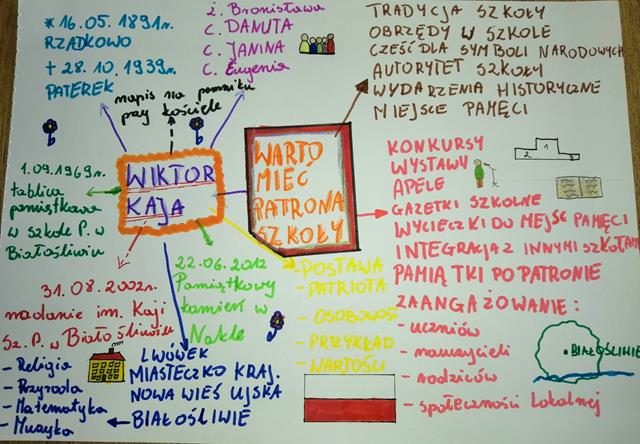 * 16.05.1891r.
RZADKOWO
+ 28.10.1939r.
PATEREK
napis na pomniku
przy kościele
ż. Bronisława
C. DANUTA
C. JANINA
C. Eugenia
TRADYCJA SZKOŁY
OBRZĘDY W SZKOLE
CZEŚĆ DLA SYMBOLI NARODOWYCH
AUTORYTET SZKOŁY
WYDARZENIA HISTORYCZNE
MIEJSCE PAMĘCI
WIKTOR
KAJA
WARTO
MIEC
PATRONA
SZKOŁY
KONKURSY
WYSTAWY
APELE
GAZETKI SZKOLNE
WYCIECZKI DO MIEJSC PAMIĘCI
INTEGRACJA Z INNYMI SZKOŁAMI
PAMIĄTKI PO PATRONIE
ZAANGAŻOWANIE:
- uczniów
- nauczycieli
- rodziców
- społeczności lokalnej
2 1
BIAŁOŚLIWIE
1.09.1969r.
tablica
pamiątkowa
w szkole P. w
Białośliwiu
31.08.2002r.
nadanie im. Kaji
Sz. P. w Białośliwiu
- Religia
- Przyroda
- Matematyka
- Muzyka
22.06.2012
Pamiątkowy
kamień w
Nakle
LWÓWEK
MIASTECZKO KRAJ.
NOWA WIEŚ UJSKA
BIAŁOŚLIWIE
- POSTAWA
- PATRIOTA
- OSOBOWOŚĆ
- PRZYKŁAD
- WARTOŚCI